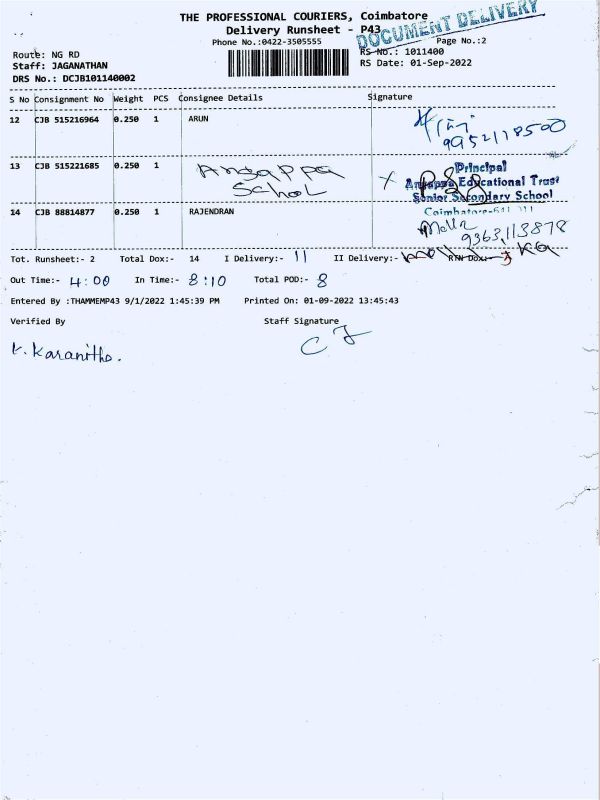 THE PROFESSIONAL COURIERS, Coimbatore
Delivery Runsheet - P43
DOCUMENT DELIVERY
Phone No.:0422-3505555
Page No.:2
Route: NG RD
RS No.: 1011400
Staff: JAGANATHAN
RS Date: 01-Sep-2022
DRS No.: DCJB101140002
S No Consignment No Weight PCS Consignee Details Signature
12 CJB 515216964 0.250 1 ARUN
9952118500
13 CJB 515221685 0.250 1 Angappa School
Principal
Angappa Educational Trust
Senior Secondary School
Coimbatore-641 311
14 CJB 88814877 0.250 1 RAJENDRAN
9363113878
Tot. Runsheet:- 2 Total Dox:- 14 I Delivery:- 11 II Delivery:- RTN Dox:- 3
Out Time:- 4:00 In Time:- 8:10 Total POD:- 8
Entered By :THAMMEMP43 9/1/2022 1:45:39 PM Printed On: 01-09-2022 13:45:43
Verified By Staff Signature